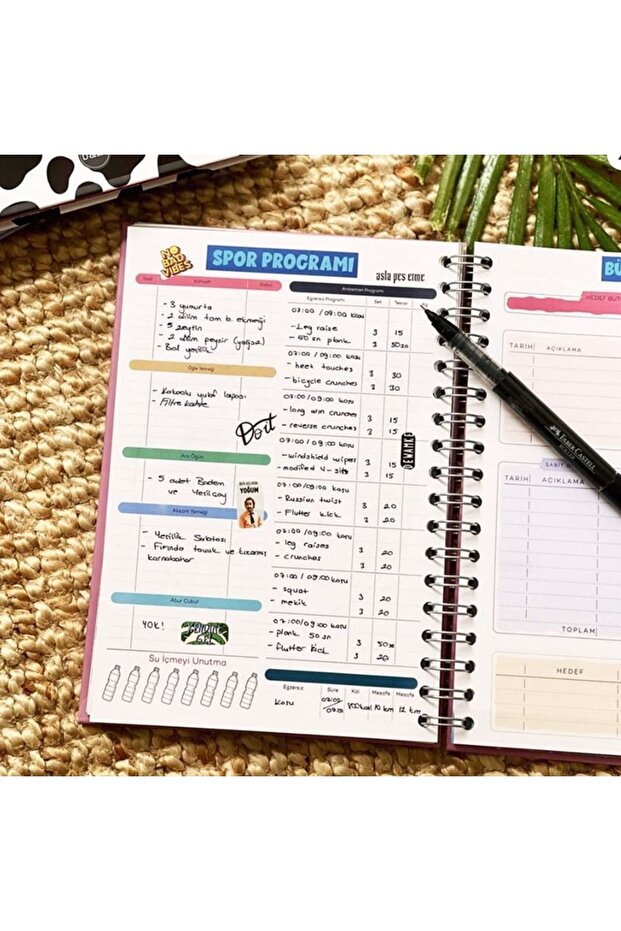 NO
BAD
VIBES
SPOR PROGRAMI
asla pes etme
Kahvaltı
- 3 yumurta
- 2 dilim tam b. ekmeği
- 5 zeytin
- 2 dilim peynir (yağsız)
- Bol yeşillik
Öğle Yemeği
- Kakaolu yulaf lapası
- Filtre kahve
Ara Öğün
- 5 adet Badem
ve Yeşilçay
YOĞUM
Akşam Yemeği
- Yeşillik Salatası
- Fırında tavuk ve
karnabahar
Abur Cubur
YOK!
Su İçmeyi Unutma
Antrenman Programı
Egzersiz Programı Set Tekrar
07:00 / 09:00 koşu
- Leg raise 3 15
- 60 sn plank 3 50sn
07:00 / 09:00 koşu
- heel touches 3 30
- bicycle crunches 3 30
07:00/09:00 koşu
- long arm crunches 3 15
- reverse crunches 3 15
DEVAMKE
07:00/09:00 koşu
- windshield wipers 3 15
- modified V-sits 3 15
07:00/09:00 koşu
- Russian twist 3 20
- Flutter kick 3 20
07:00 / 09:00 koşu
- leg raises 3 20
- crunches 3 20
07:00 / 09:00 koşu
- squat 3 20
- mekik 3 20
07:00/09:00 koşu
- plank 50 sn 3 50sn
- flutter kick 3 20
Egzersiz Süre Kal. Mesafe Mesafe
Koşu 10 km 12 km
FABER-CASTELL
HEDEF BÜT
TARİH AÇIKLAMA
SABİT
TARİH AÇIKLAMA
TOPLAM
HEDEF